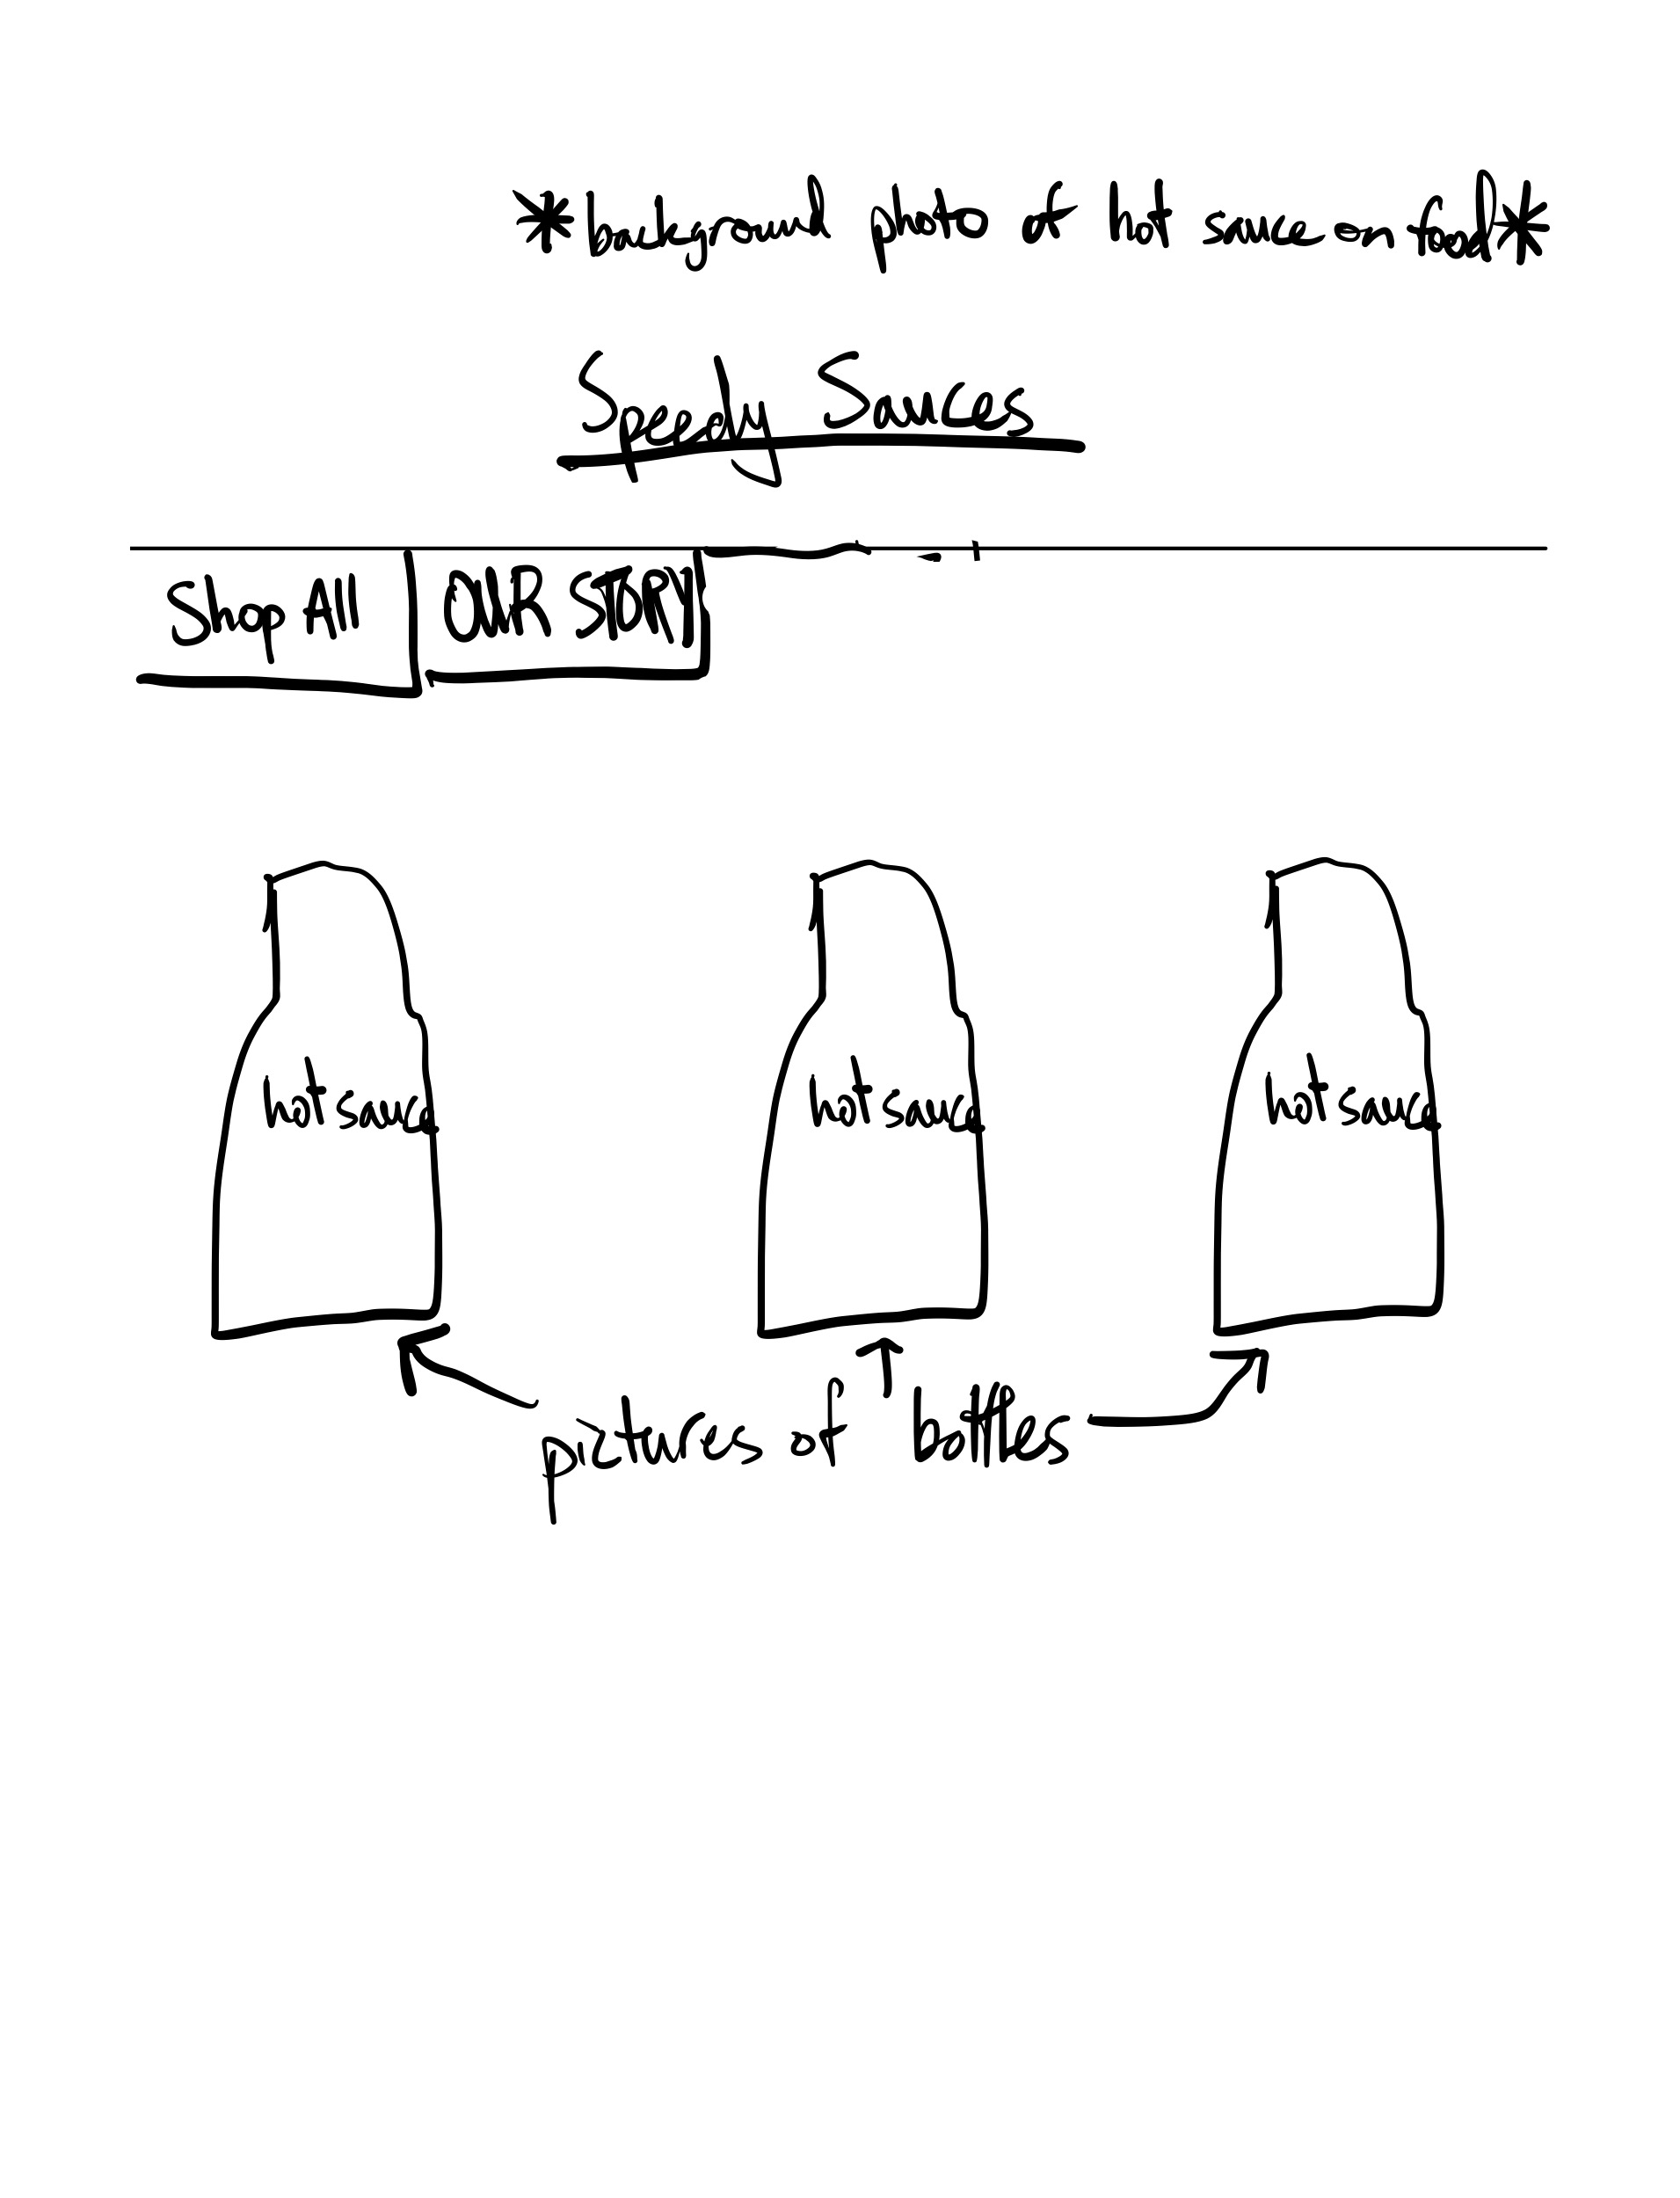 *background photo of hot sauce on food*
Speedy Sauces
Shop All
OUR STORY
hot sauce
hot sauce
hot sauce
pictures of bottles